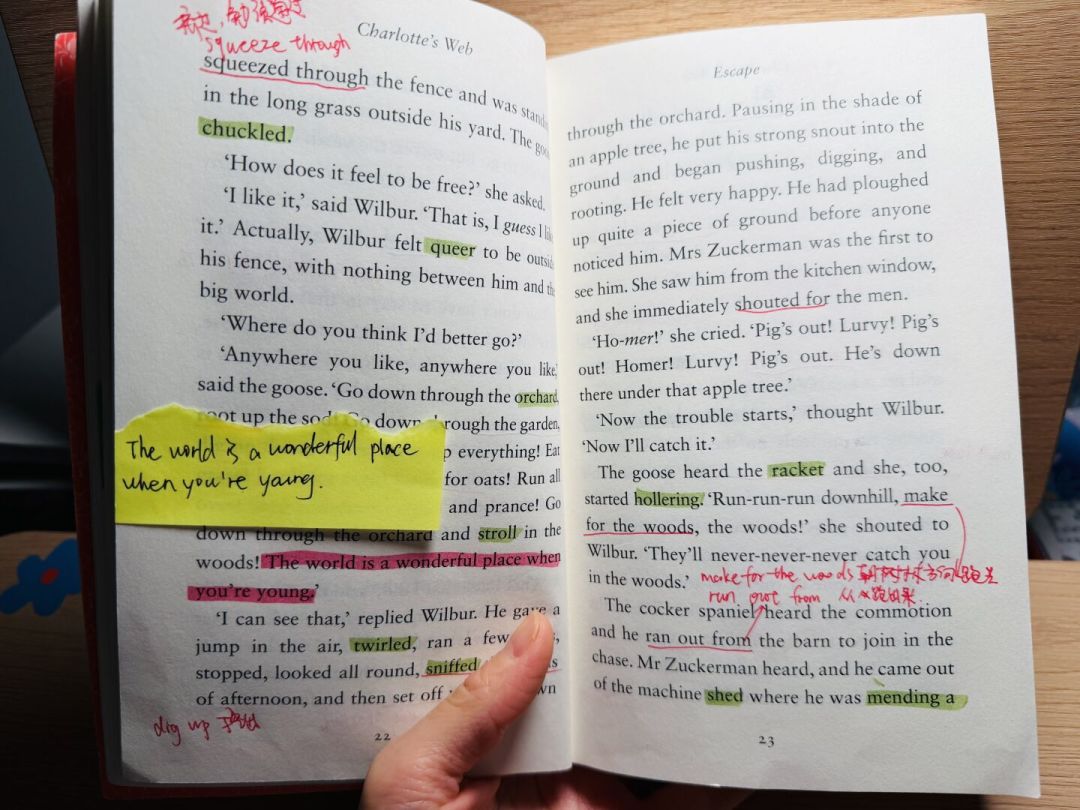 Charlotte's Web
squeeze through
squeezed through the fence and was
in the long grass outside his yard. The
chuckled.
'How does it feel to be free?' she asked.
'I like it,' said Wilbur. 'That is, I guess I
it.' Actually, Wilbur felt queer to be
his fence, with nothing between him and the
big world.
'Where do you think I'd better go?'
'Anywhere you like, anywhere you like,'
said the goose. 'Go down through the orchard,
root up the sod! Go down through the garden,
The world is a wonderful place
when you're young.
everything! Eat
for oats! Run all
and prance! Go
down through the orchard and stroll in the
woods! The world is a wonderful place when
you're young.'
'I can see that,' replied Wilbur. He gave a
jump in the air, twirled, ran a few
stopped, looked all round, sniffed
of afternoon, and then set off
dig up
22
Escape
through the orchard. Pausing in the shade of
an apple tree, he put his strong snout into the
ground and began pushing, digging, and
rooting. He felt very happy. He had ploughed
up quite a piece of ground before anyone
noticed him. Mrs Zuckerman was the first to
see him. She saw him from the kitchen window,
and she immediately shouted for the men.
'Ho-mer!' she cried. 'Pig's out! Lurvy! Pig's
out! Homer! Lurvy! Pig's out. He's down
there under that apple tree.'
'Now the trouble starts,' thought Wilbur.
'Now I'll catch it.'
The goose heard the racket and she, too,
started hollering. 'Run-run-run downhill, make
for the woods, the woods!' she shouted to
Wilbur. 'They'll never-never-never catch you
in the woods.'
make for the woods 朝树林方向跑去
run out from 从 跑出来
The cocker spaniel heard the commotion
and he ran out from the barn to join in the
chase. Mr Zuckerman heard, and he came out
of the machine shed where he was mending a
23